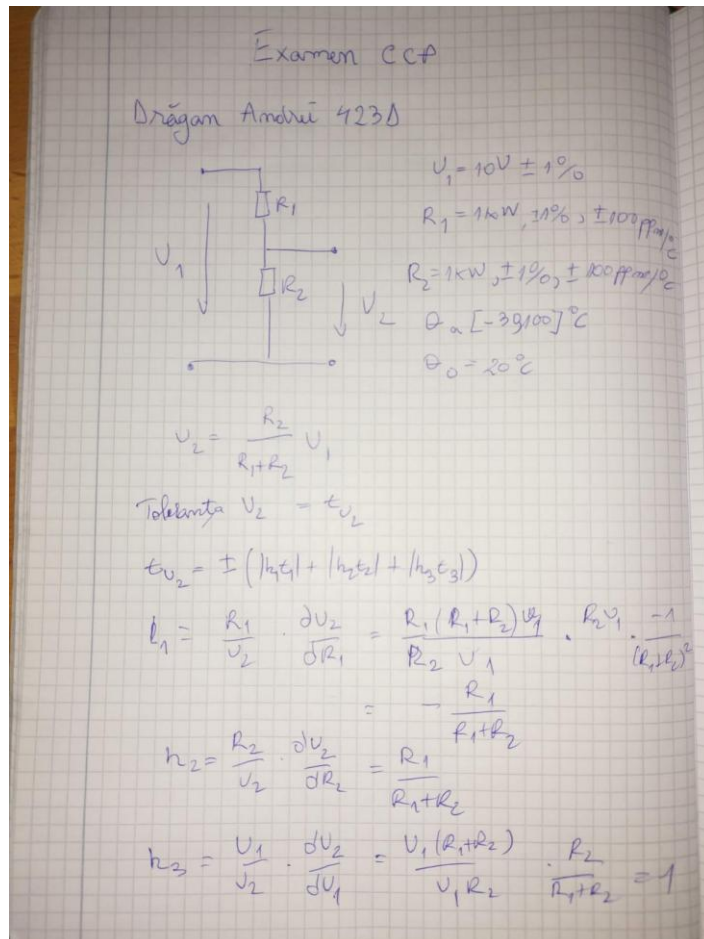 Examen CCP
Drăgan Andrei 423D
U₁ = 10V ± 1%
R₁ = 1kW, ±1%, ±100ppm/°C
R₂ = 1kW, ±1%, ±100ppm/°C
θₐ [-39,100]°C
θ₀ = 20°C
R₁
U₁
R₂
U₂
U₂ = R₂/(R₁+R₂) U₁
Toleranța U₂ = t_U₂
t_U₂ = ± (|h₁t₁| + |h₂t₂| + |h₃t₃|)
h₁ = R₁/U₂ · ∂U₂/∂R₁ = R₁(R₁+R₂)U₁/(R₂ U₁) · R₂U₁ · -1/(R₁+R₂)²
= - R₁/(R₁+R₂)
h₂ = R₂/U₂ · ∂U₂/∂R₂ = R₁/(R₁+R₂)
h₃ = U₁/U₂ · ∂U₂/∂U₁ = U₁(R₁+R₂)/(U₁R₂) · R₂/(R₁+R₂) = 1